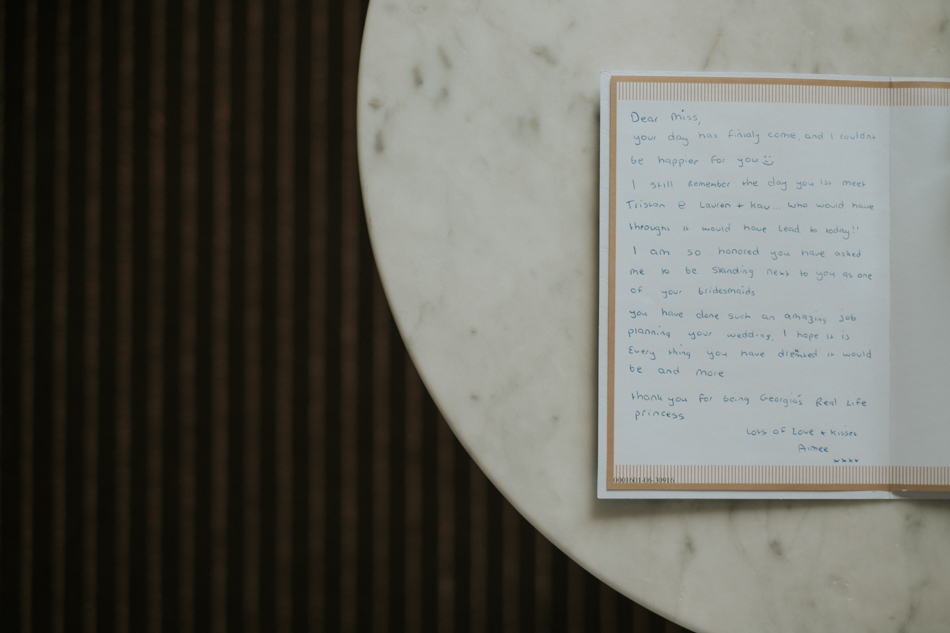 Dear Miss,
your day has finialy come, and I couldnt
be happier for you
I still Remember the day you 1st meet
Tristan @ Lauren + Kav... who would have
throught it would have lead to today!!
I am so honored you have asked
me to be standing next to you as one
of your bridesmaids
you have done such an amazing Job
planning your wedding, I hope it is
Every thing you have dremed it would
be and more
thank you for being Georgia's Real Life
princess
Lots of Love + kisses
Aimee
xxxx